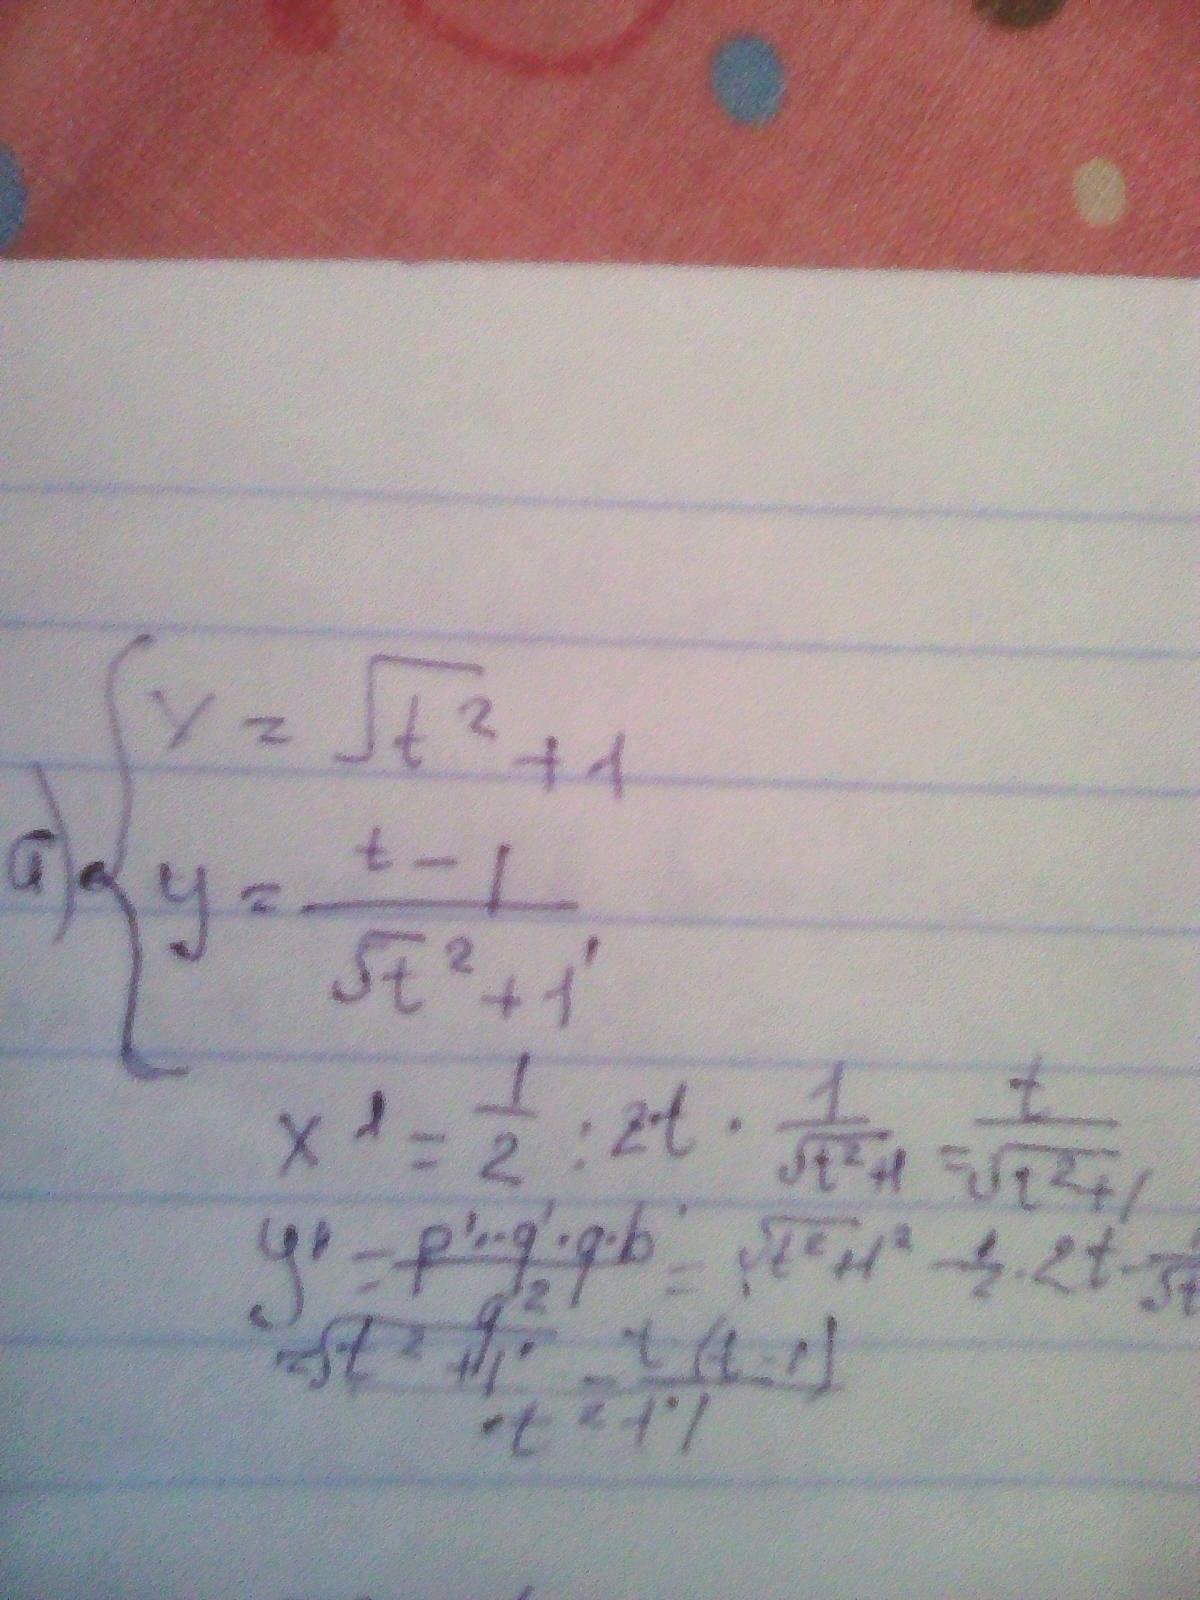 x = √t² + 1
a) y = (t - 1) / (√t² + 1)
x' = 1/2 : 2t · 1/√t²+1 = t/√t²+1
y' = / q² = √t²+1² - 1/2 · 2t ·
=√t² + 1 - t(t-1) / t² + 1